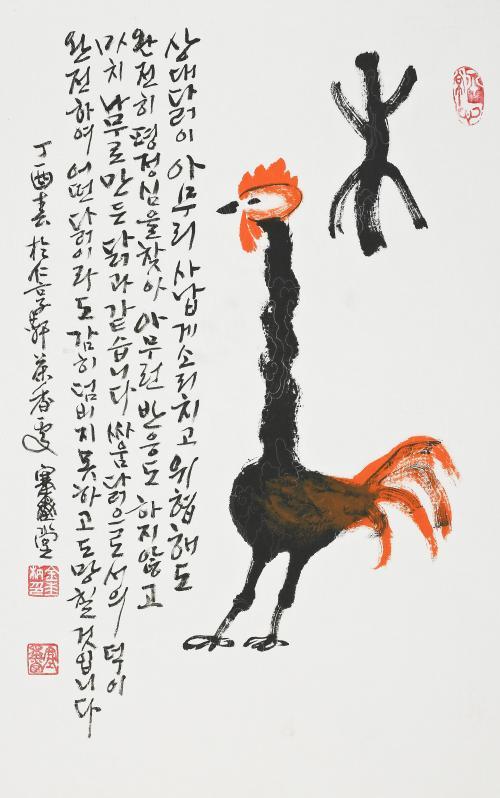 木
상대닭이 아무리 사납게 소리치고 위협해도
완전히 평정심을 찾아 아무런 반응도 하지 않고
마치 나무로 만든 닭과 같습니다 싸움닭으로서의 덕이
완전하여 어떤 닭이라도 감히 덤비지 못하고 도망칠 것입니다
丁酉春 於仁 軒茶香 堂